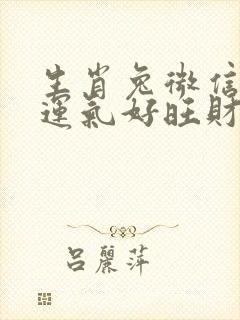 生肖兔微信
運氣好旺財
吕麗萍